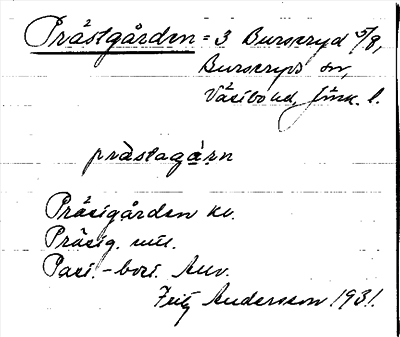 Prästgården = 3 Burseryd 5/8,
Burseryds sn,
Västbo hd, Jönk. l.
prästagårn
Prästgården kv.
Prästg. mtl.
Past.-bost. Anv.
Fritz Andersson 1931.